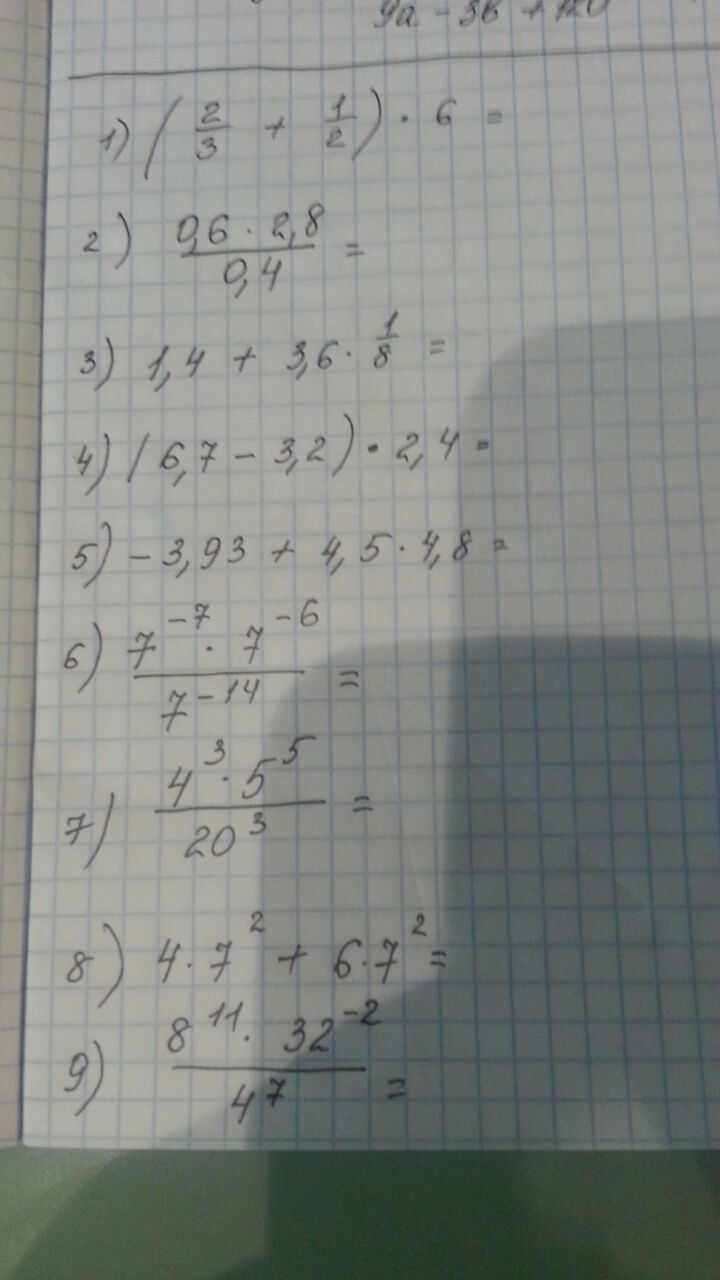 1) (2/3 + 1/2) · 6 =
2) 0,6 · 2,8 / 0,4 =
3) 1,4 + 3,6 · 1/8 =
4) (6,7 - 3,2) · 2,4 =
5) -3,93 + 4,5 · 4,8 =
6) 7⁻⁷ · 7⁻⁶ / 7⁻¹⁴ =
7) 4³ · 5⁵ / 20³ =
8) 4 · 7² + 6 · 7² =
9) 8¹¹ · 32⁻² / 4⁷ =